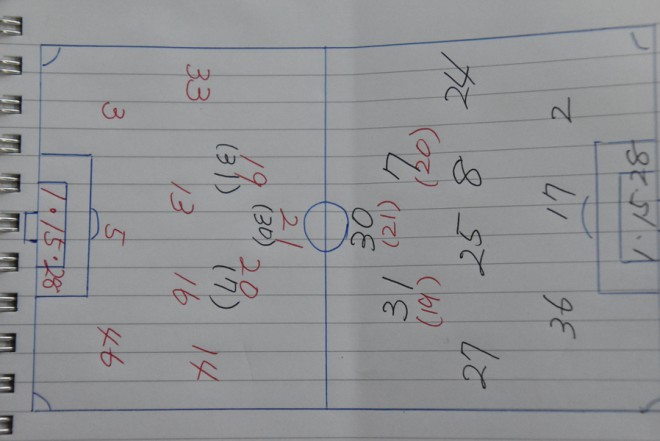 21
(30)
19 20
(31) (7)
33 13 16 14
3 5 46
1·15·28
30
(21)
31 7
(19) (20)
27 25 8 24
36 17 2
1·15·28